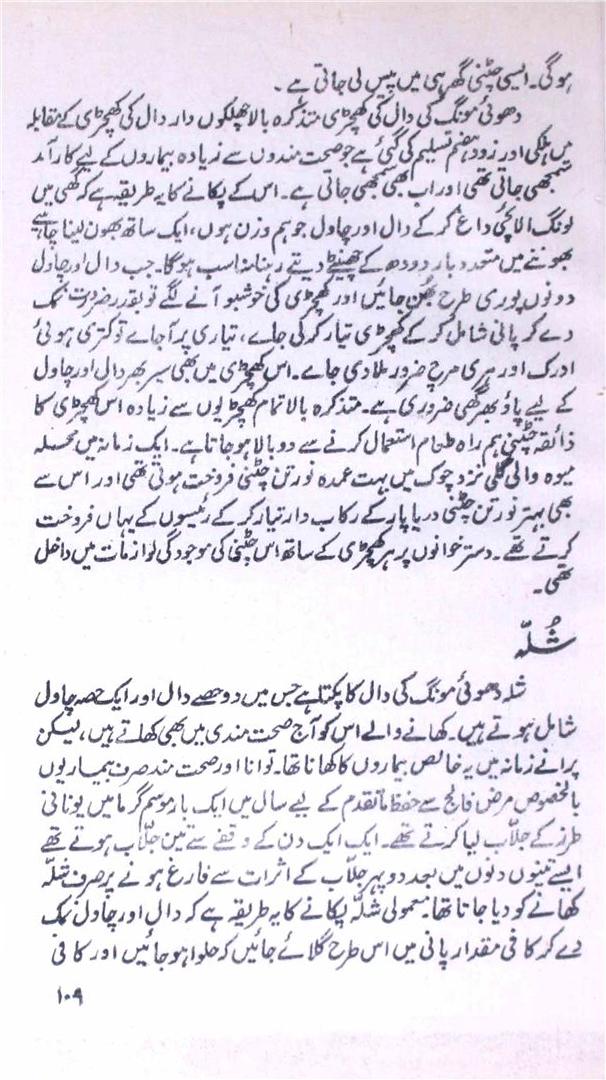 ہوگی۔ ایسی چٹنی گھر ہی میں پیس لی جاتی ہے۔
دھوئی مونگ کی دال کی کھچڑی متذکرہ بالا چھلکوں دار دال کی کھچڑی کے مقابلہ
میں ہلکی اور زود ہضم تسلیم کی گئی ہے جو صحت مندوں سے زیادہ بیماروں کے لیے کارآمد
سمجھی جاتی تھی اور اب بھی سمجھی جاتی ہے۔ اس کے پکانے کا یہ طریقہ ہے کہ گھی میں
لونگ الائچی داغ کر کے دال اور چاول جو ہم وزن ہوں، ایک ساتھ بھون لینا چاہیے
بھوننے میں متعدد بار دودھ کے چھینٹے دیتے رہنا مناسب ہوگا۔ جب دال اور چاول
دونوں پوری طرح بھُن جائیں اور کھچڑی کی خوشبو آنے لگے تو بقدر ضرورت نمک
دے کر پانی شامل کر کے کھچڑی تیار کر لی جاے، تیاری پر آجاے تو کتری ہوئی
ادرک اور ہری مرچ ضرور ملا دی جاے۔ اس کھچڑی میں بھی سیر بھر دال اور چاول
کے لیے پاؤ بھر گھی ضروری ہے۔ متذکرہ بالا تمام کھچڑیوں سے زیادہ اس کھچڑی کا
ذائقہ چٹنی ہم راہ طعام استعمال کرنے سے دوبالا ہو جاتا ہے۔ ایک زمانہ میں محلہ
میوہ والی گلی نزد چوک میں بہت عمدہ نورتن چٹنی فروخت ہوتی تھی اور اس سے
بھی بہتر نورتن چٹنی دریا پار کے رکاب دار تیار کر کے رئیسوں کے یہاں فروخت
کرتے تھے۔ دسترخوانوں پر ہر کھچڑی کے ساتھ اس چٹنی کی موجودگی لوازمات میں داخل
تھی۔
شُلّہ
شلہ دھوئی مونگ کی دال کا پکتا ہے جس میں دو حصے دال اور ایک حصہ چاول
شامل ہوتے ہیں۔ کھانے والے اس کو آج صحت مندی میں بھی کھاتے ہیں، لیکن
پرانے زمانہ میں یہ خالص بیماروں کا کھانا تھا۔ توانا اور صحت مند صرف بیماریوں
بالخصوص مرض فالج سے حفظ ماتقدم کے لیے سال میں ایک بار موسم گرما میں یونانی
طرز کے جلاب لیا کرتے تھے۔ ایک ایک دن کے وقفے سے تین جلّاب ہوتے تھے
ایسے تینوں دنوں میں بعد دوپہر جلّاب کے اثرات سے فارغ ہونے پر صرف شلّہ
کھانے کو دیا جاتا تھا۔ معمولی شلّہ پکانے کا یہ طریقہ ہے کہ دال اور چاول نمک
دے کر کافی مقدار پانی میں اس طرح گلائے جائیں کہ حلوا ہو جائیں اور کافی
۱۰۹